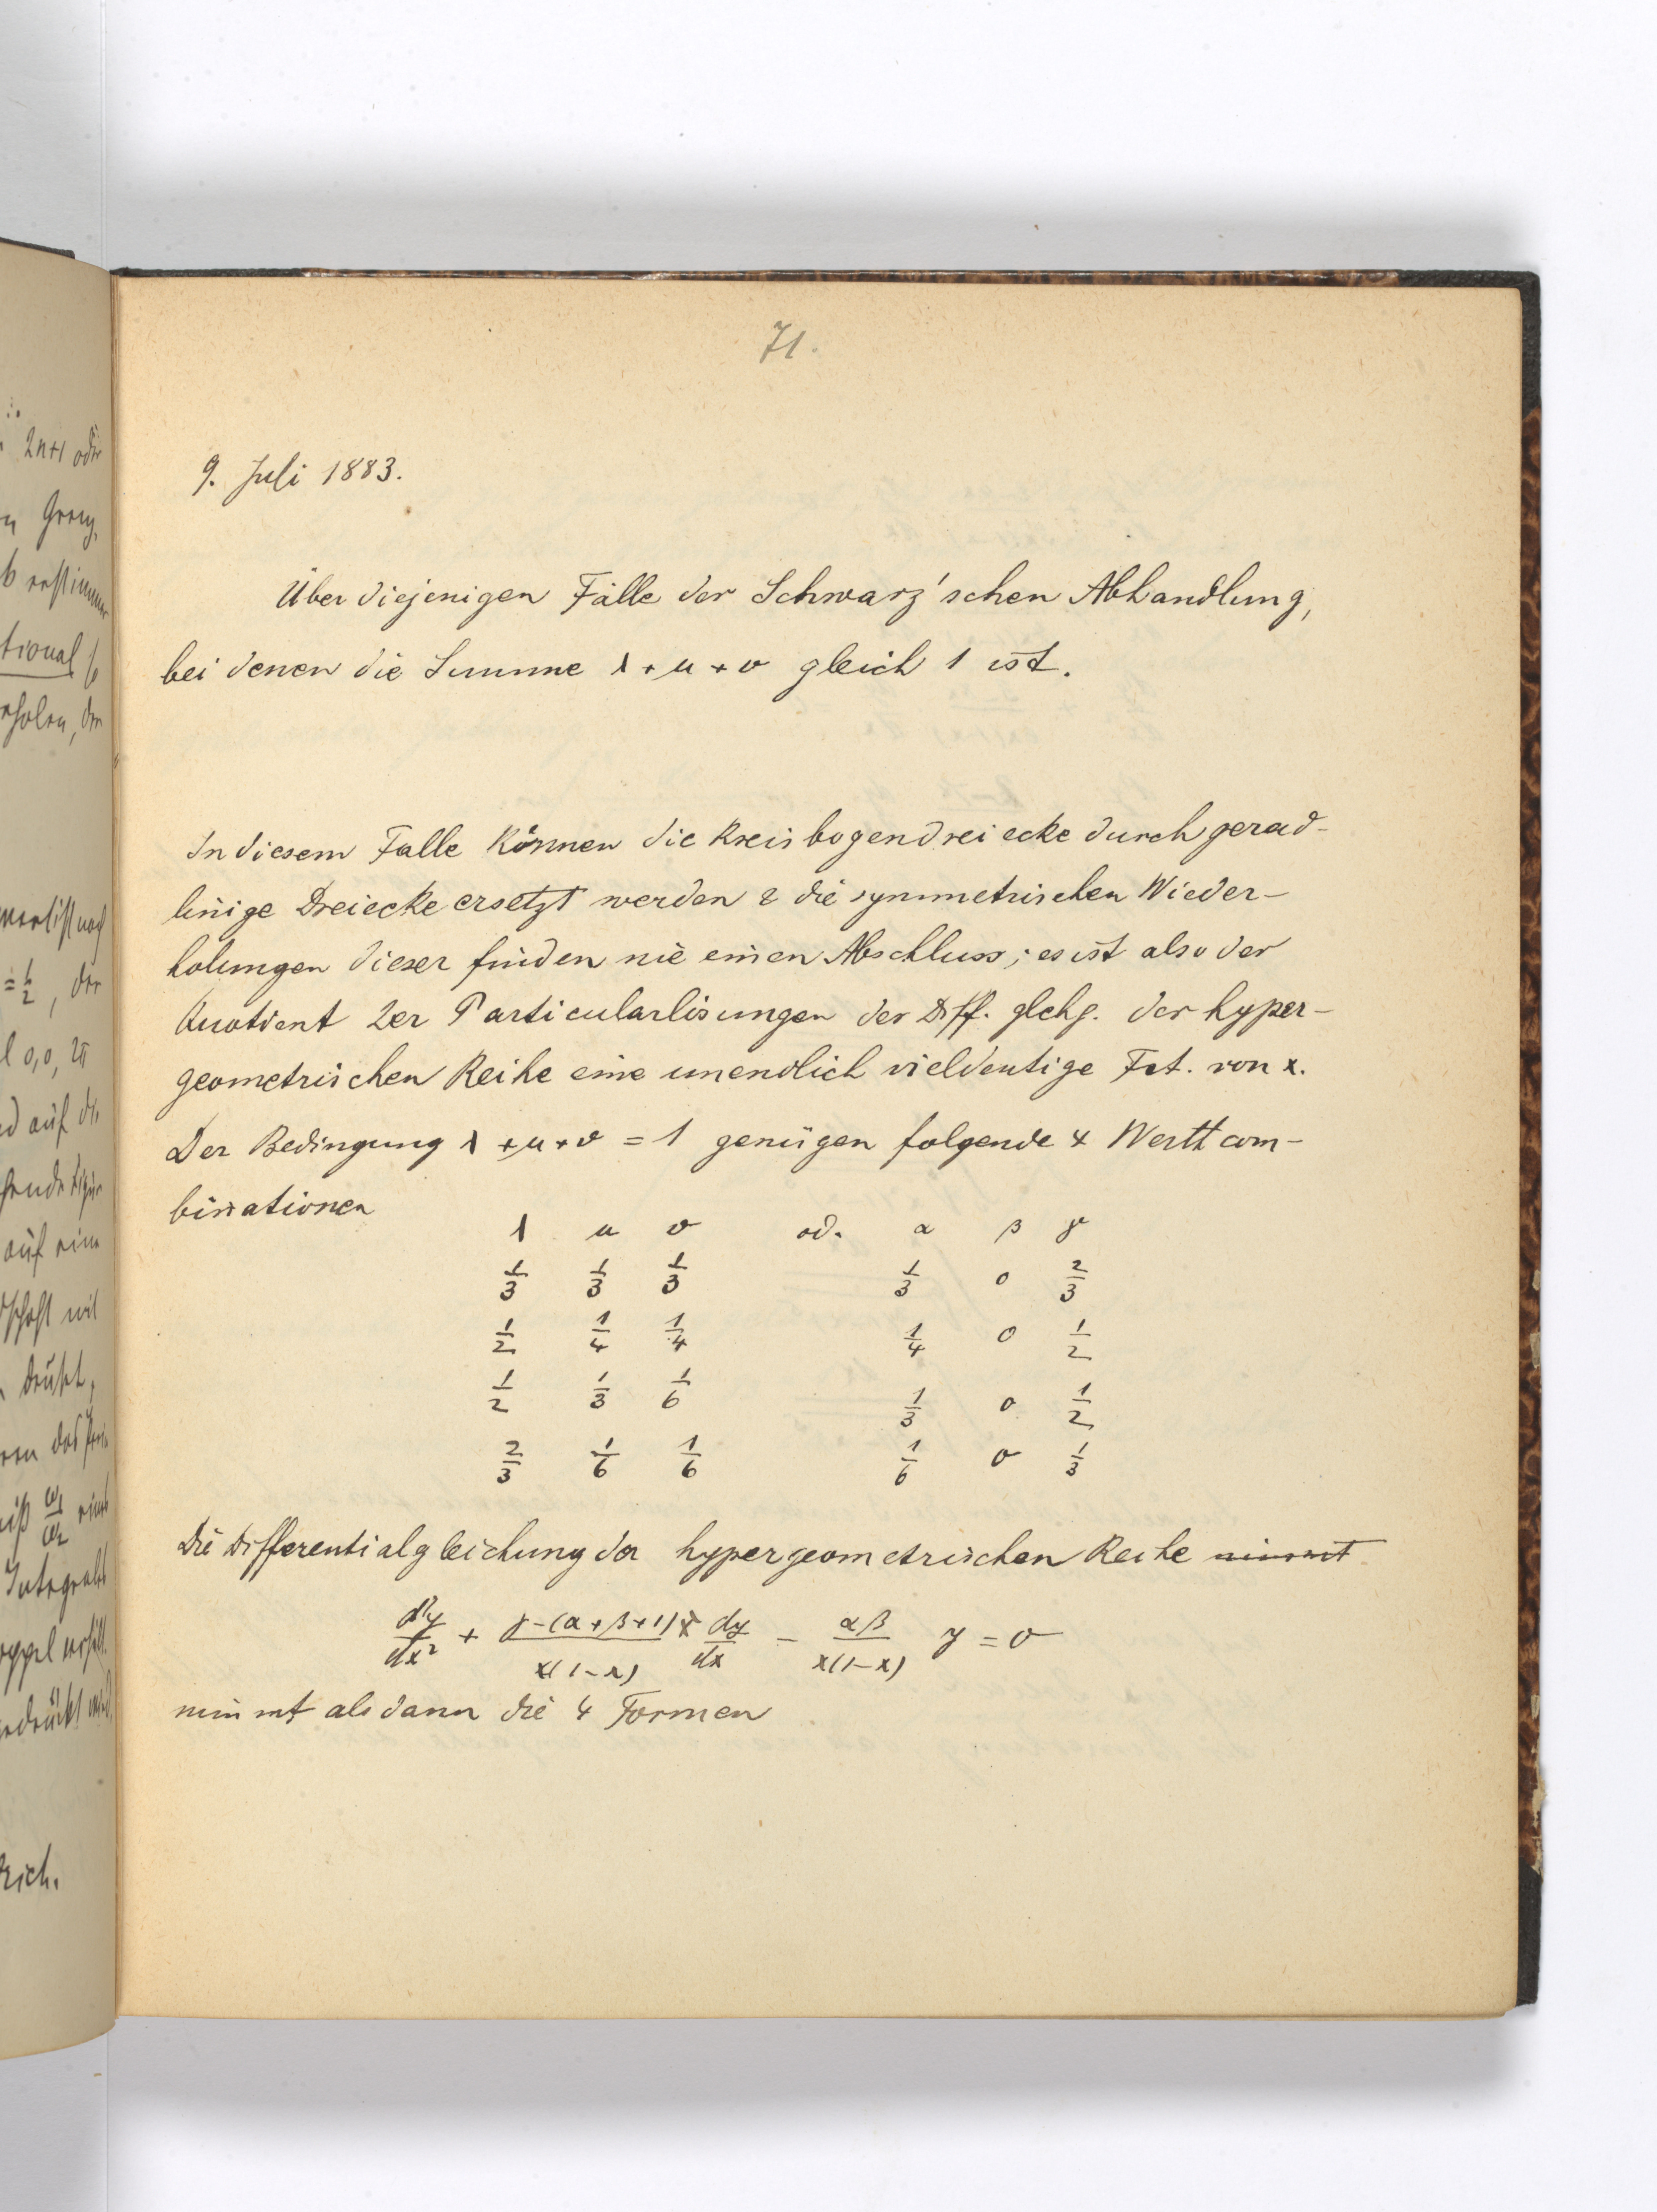 71.
9. Juli 1883.
Über diejenigen Fälle der Schwarz'schen Abhandlung,
bei denen die Summe λ + μ + ν gleich 1 ist.
In diesem Falle können die Kreisbogendreiecke durch gerad-
linige Dreiecke ersetzt werden & die symmetrischen Wieder-
holungen dieser finden nie einen Abschluss; es ist also der
Quotient 2er Particularlösungen der Diff. glchg. der hyper-
geometrischen Reihe eine unendlich vieldeutige Fct. von x.
Der Bedingung λ + μ + ν = 1 genügen folgende 4 Werthcom-
binationen
λ μ ν od. α β γ
1/3 1/3 1/3 1/3 0 2/3
1/2 1/4 1/4 1/4 0 1/2
1/2 1/3 1/6 1/3 0 1/2
2/3 1/6 1/6 1/6 0 1/3
Die Differentialgleichung der hypergeometrischen Reihe nimmt
d²y/dx² + γ-(α+β+1)x/x(1-x) dy/dx - αβ/x(1-x) y = 0
nimmt alsdann die 4 Formen
2n+1 oder
tional
= 1/2, der
auf die
auf eine
Integral